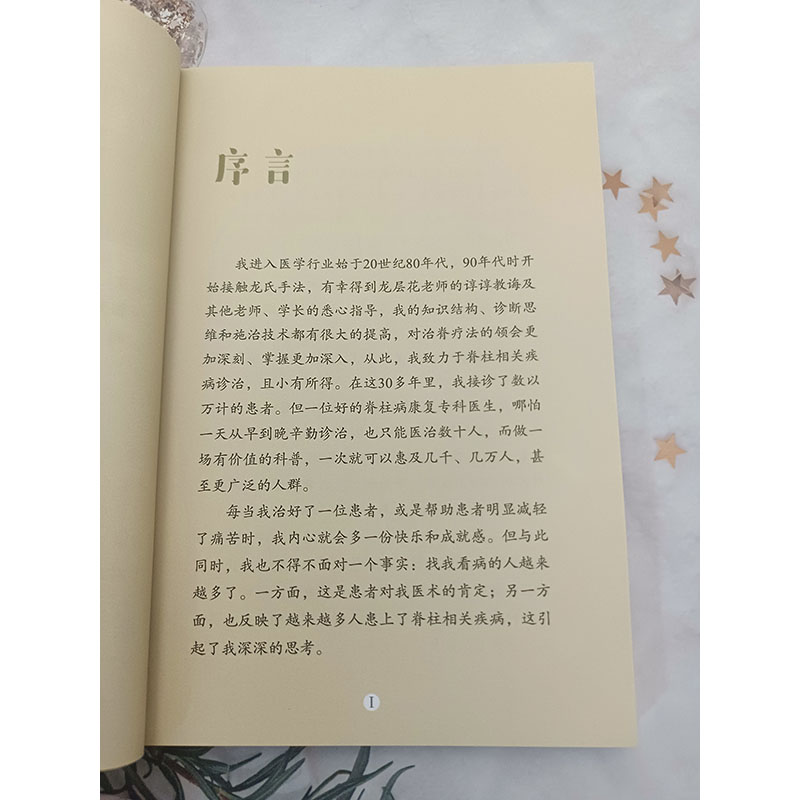 序言
我进入医学行业始于20世纪80年代，90年代时开
始接触龙氏手法，有幸得到龙层花老师的谆谆教诲及
其他老师、学长的悉心指导，我的知识结构、诊断思
维和施治技术都有很大的提高，对治脊疗法的领会更
加深刻、掌握更加深入，从此，我致力于脊柱相关疾
病诊治，且小有所得。在这30多年里，我接诊了数以
万计的患者。但一位好的脊柱病康复专科医生，哪怕
一天从早到晚辛勤诊治，也只能医治数十人，而做一
场有价值的科普，一次就可以惠及几千、几万人，甚
至更广泛的人群。
每当我治好了一位患者，或是帮助患者明显减轻
了痛苦时，我内心就会多一份快乐和成就感。但与此
同时，我也不得不面对一个事实：找我看病的人越来
越多了。一方面，这是患者对我医术的肯定；另一方
面，也反映了越来越多人患上了脊柱相关疾病，这引
起了我深深的思考。
I